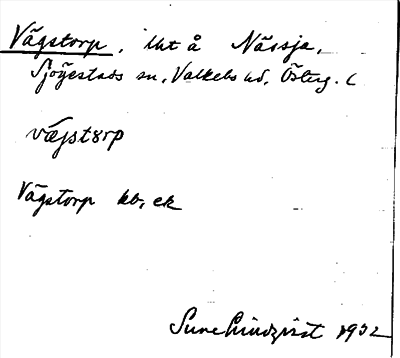 Vägstorp, lht å Nässja,
Sjögestads sn, Valkebo hd, Österg. l
vægstɔrp
Vägstorp kb, ek
Sune Lindqvist 1932